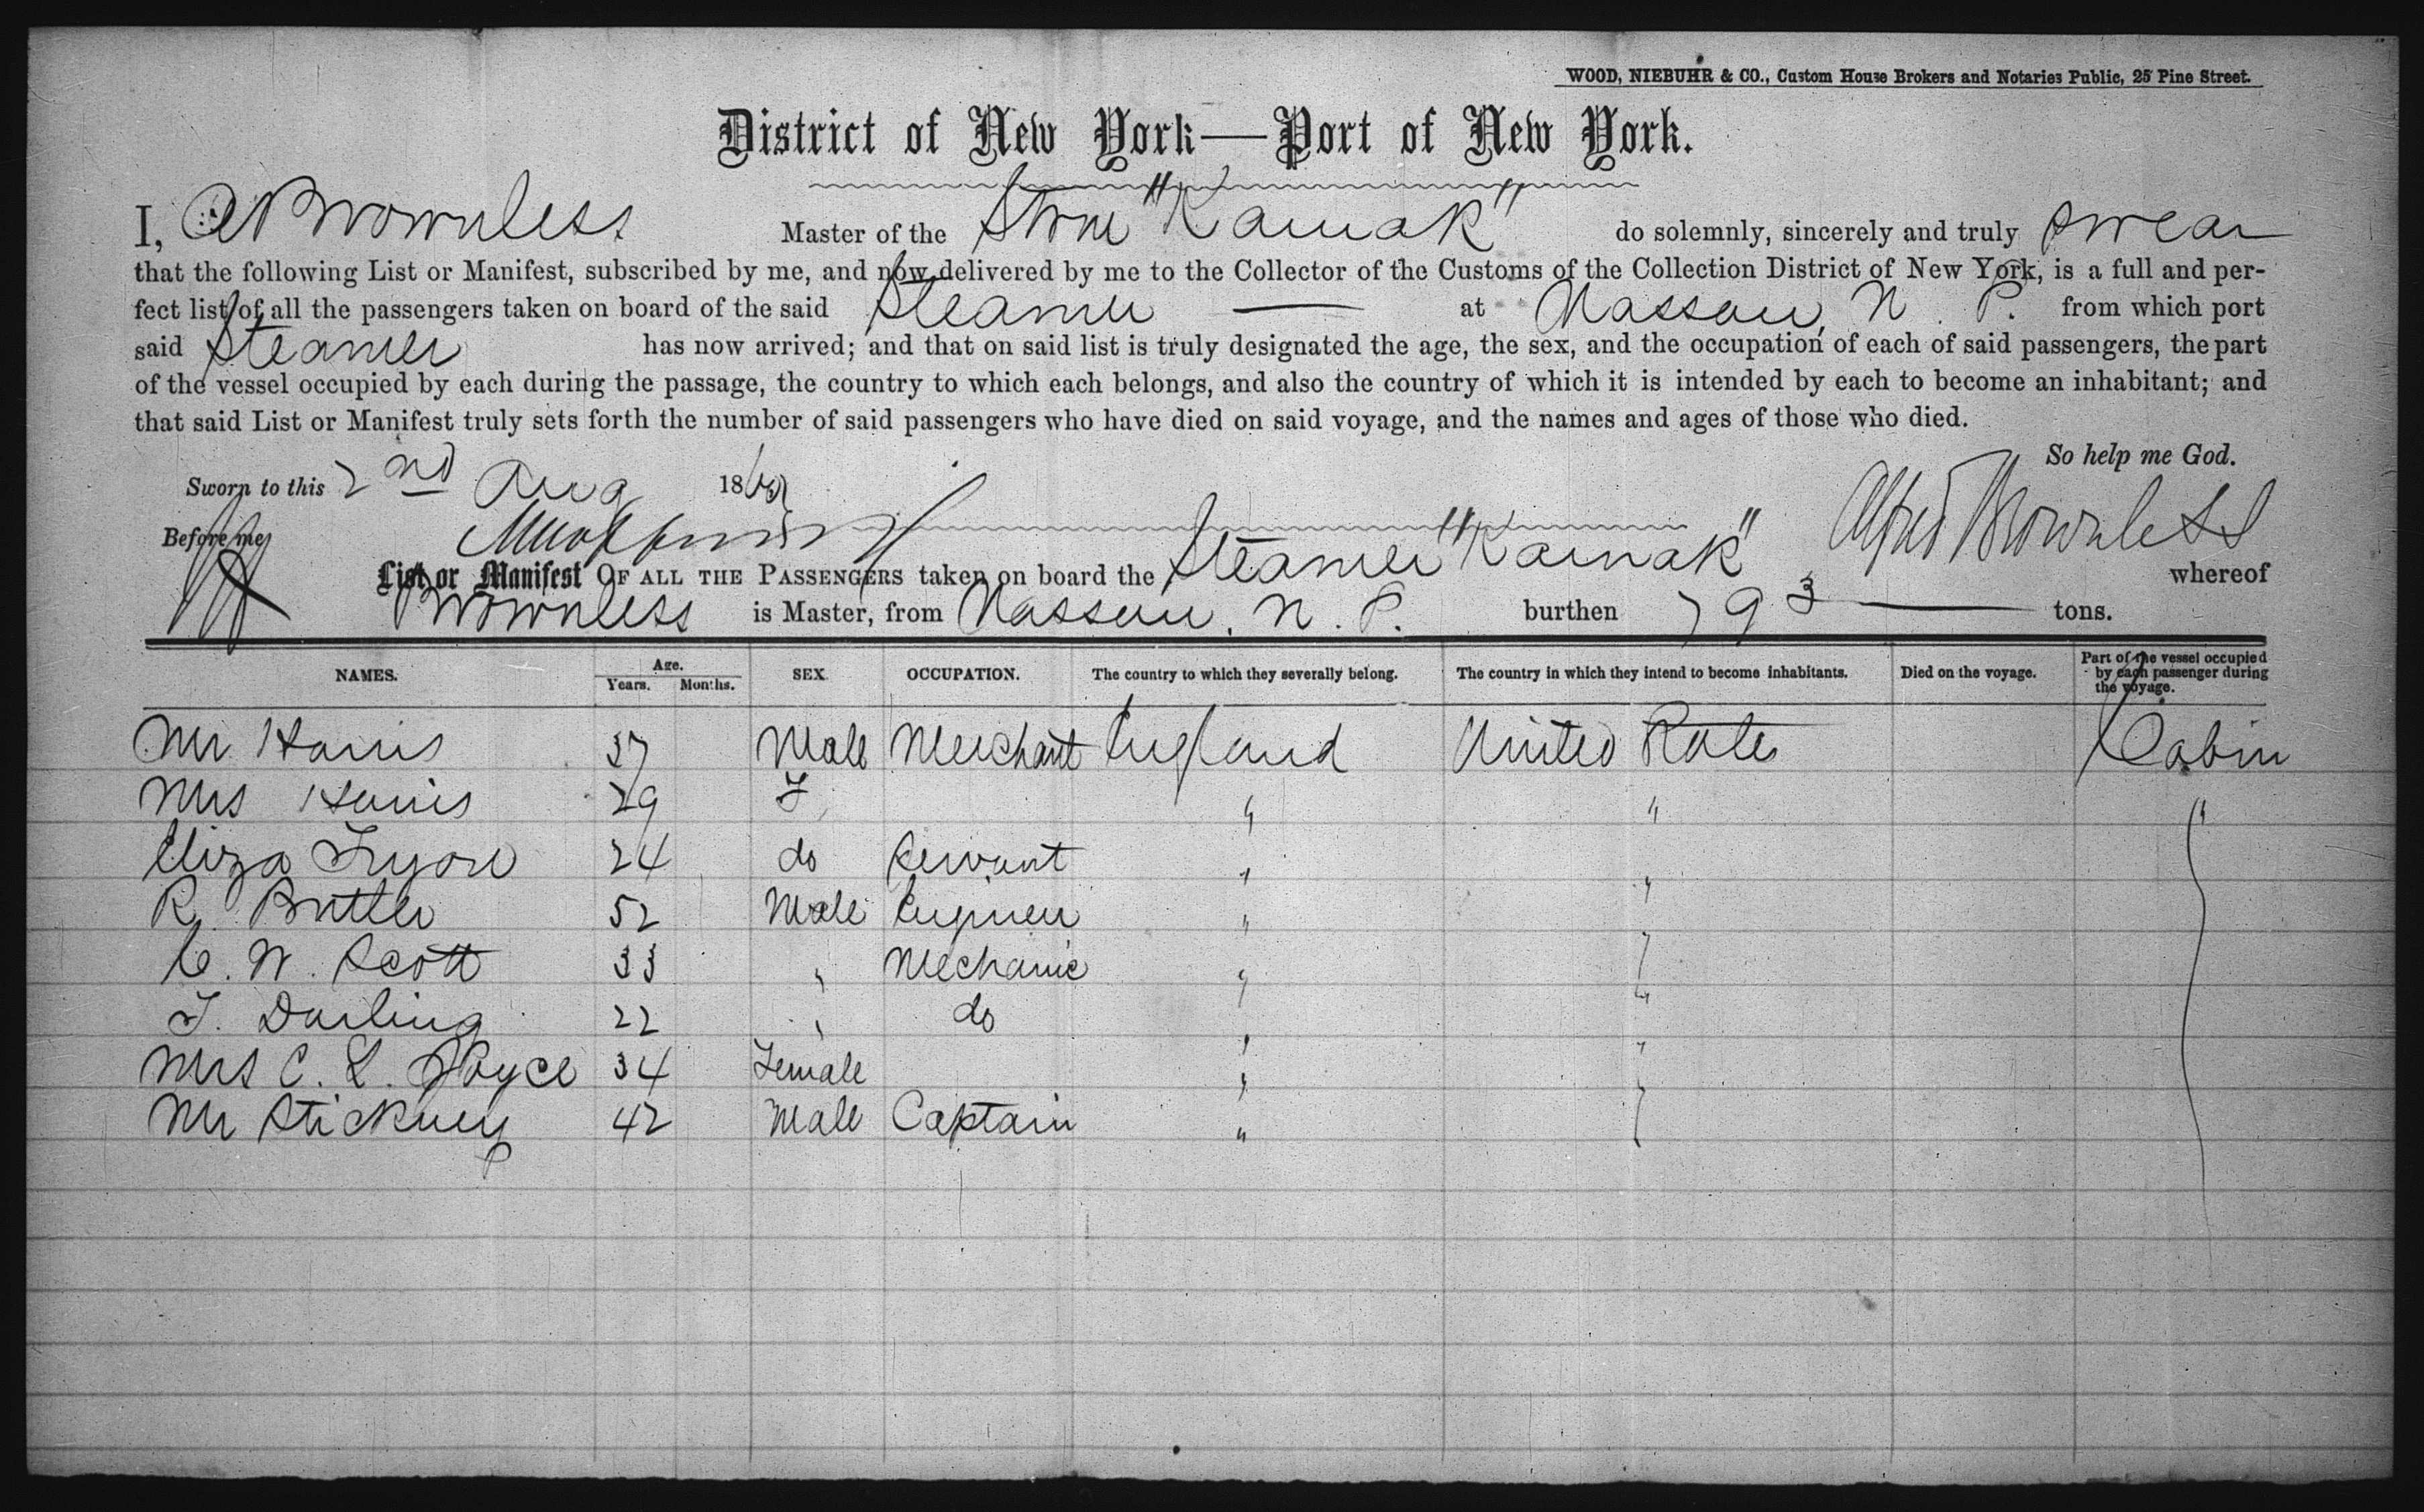 WOOD, NIEBUHR & CO., Custom House Brokers and Notaries Public, 25 Pine Street.
District of New York—Port of New York.
I, A Brownless Master of the Stmr "Karnak" do solemnly, sincerely and truly swear
that the following List or Manifest, subscribed by me, and now delivered by me to the Collector of the Customs of the Collection District of New York, is a full and per-
fect list of all the passengers taken on board of the said Steamer — at Nassau, N. P. from which port
said Steamer has now arrived; and that on said list is truly designated the age, the sex, and the occupation of each of said passengers, the part
of the vessel occupied by each during the passage, the country to which each belongs, and also the country of which it is intended by each to become an inhabitant; and
that said List or Manifest truly sets forth the number of said passengers who have died on said voyage, and the names and ages of those who died.
So help me God.
Sworn to this 2nd Aug 186
Alfred Brownless
Before me
List or Manifest OF ALL THE PASSENGERS taken on board the Steamer "Karnak" whereof
Brownless is Master, from Nassau, N. P. burthen 793 — tons.
NAMES. Age. Years. Months. SEX. OCCUPATION. The country to which they severally belong. The country in which they intend to become inhabitants. Died on the voyage. Part of the vessel occupied by each passenger during the voyage.
Mr Harris 37 Male Merchant England United States Cabin
Mrs Harris 29 F " " "
Eliza Tryon 24 do Servant " "
R. Butler 52 Male Engineer " "
C. W. Scott 33 " Mechanic " "
T. Darling 22 " do " "
Mrs C. L. Royce 34 Female " "
Mr Stickney 42 Male Captain "